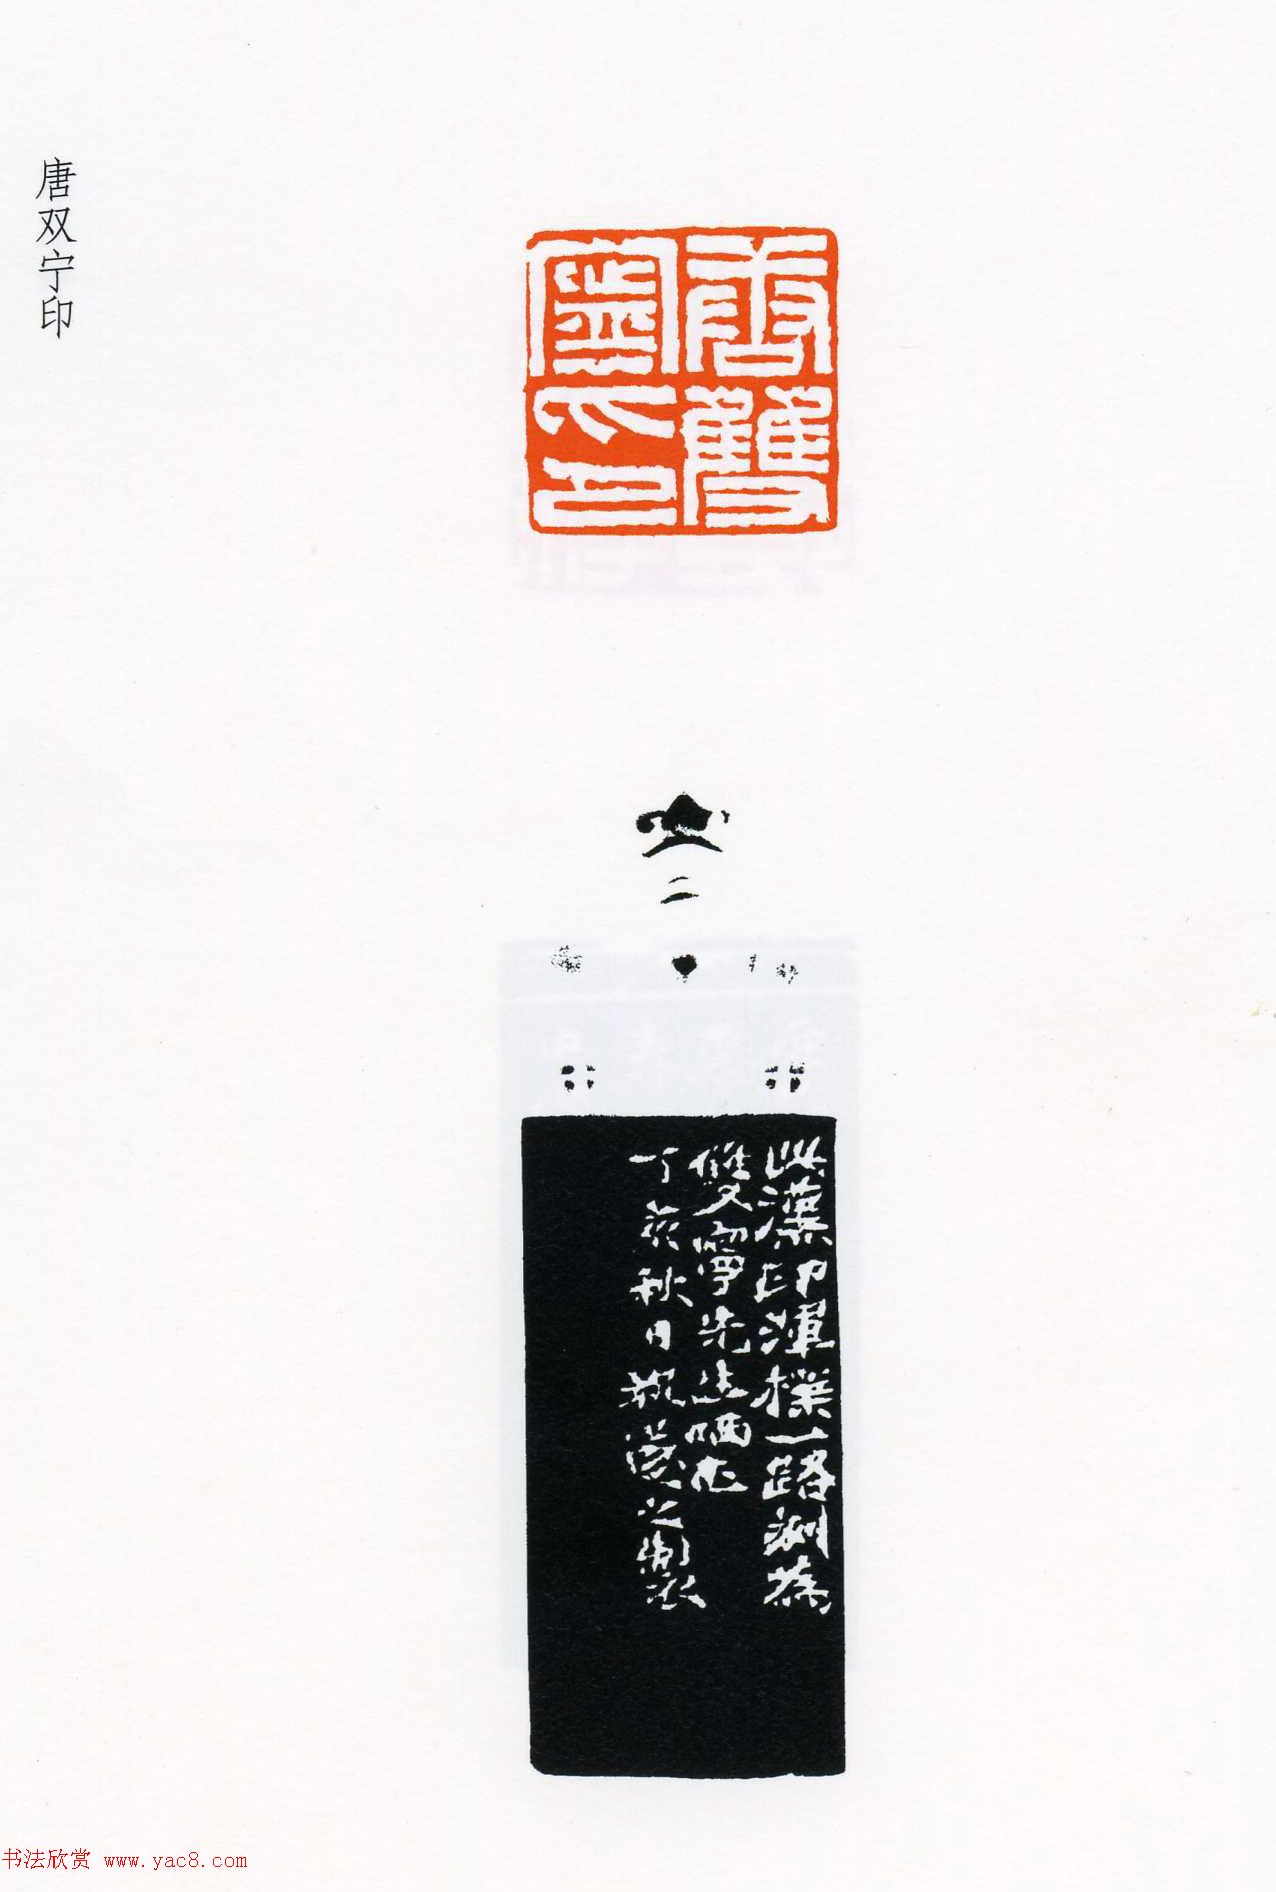 唐双宁印
唐雙
寧印
此漢印渾樸一路刻為
雙寧先生哂正
丁亥秋日
之製
书法欣赏 www.yac8.com